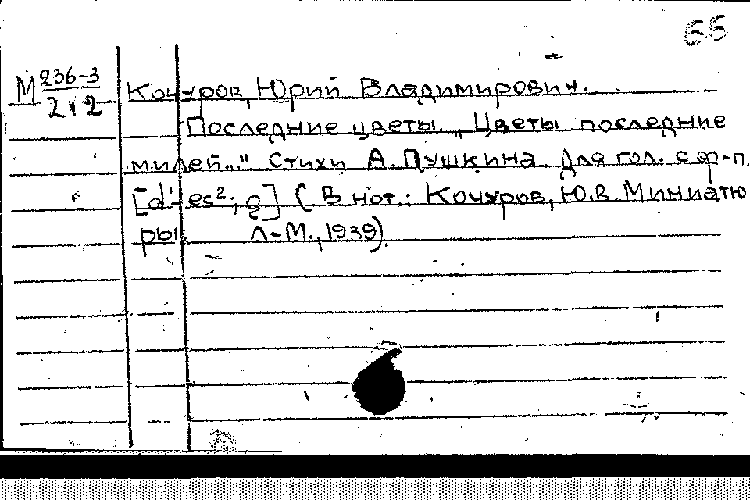 65
М 236-3
2 i 2
Кочуров, Юрий Владимирович.
Последние цветы. „Цветы последние
милей..." Стихи А. Пушкина. Для гол. с ф-п.
[d'-es²; g] (В нот.: Кочуров, Ю.В. Миниатю
ры. Л-М., 1939).